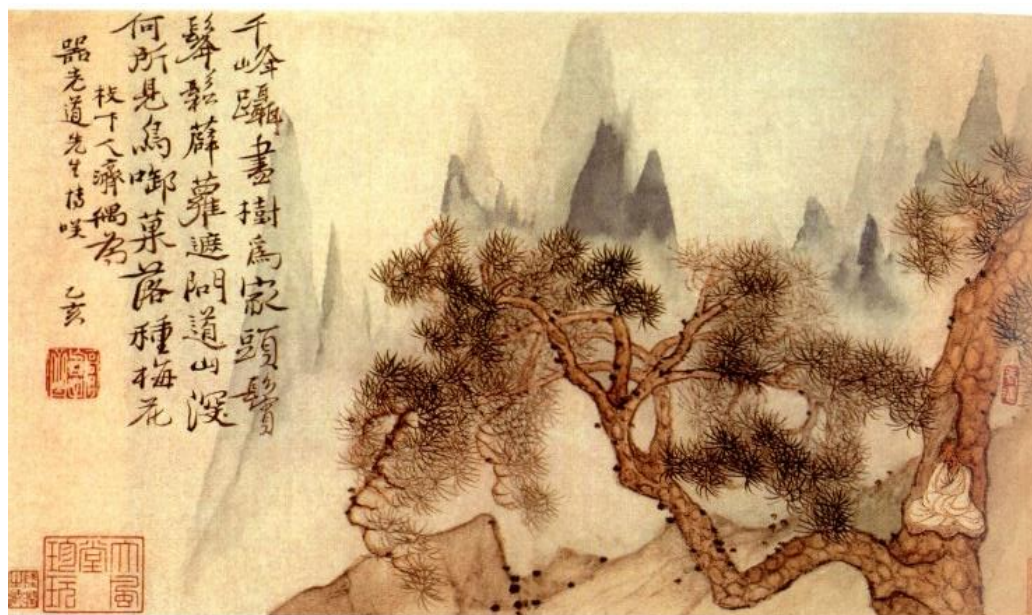 千峰躡盡樹爲家頭鬢
髼鬆薜蘿遮問道山深
何所見鳥啣菓落種梅花
枝下人濟偶爲
器老道先生博咲
乙亥
大風堂珍玩